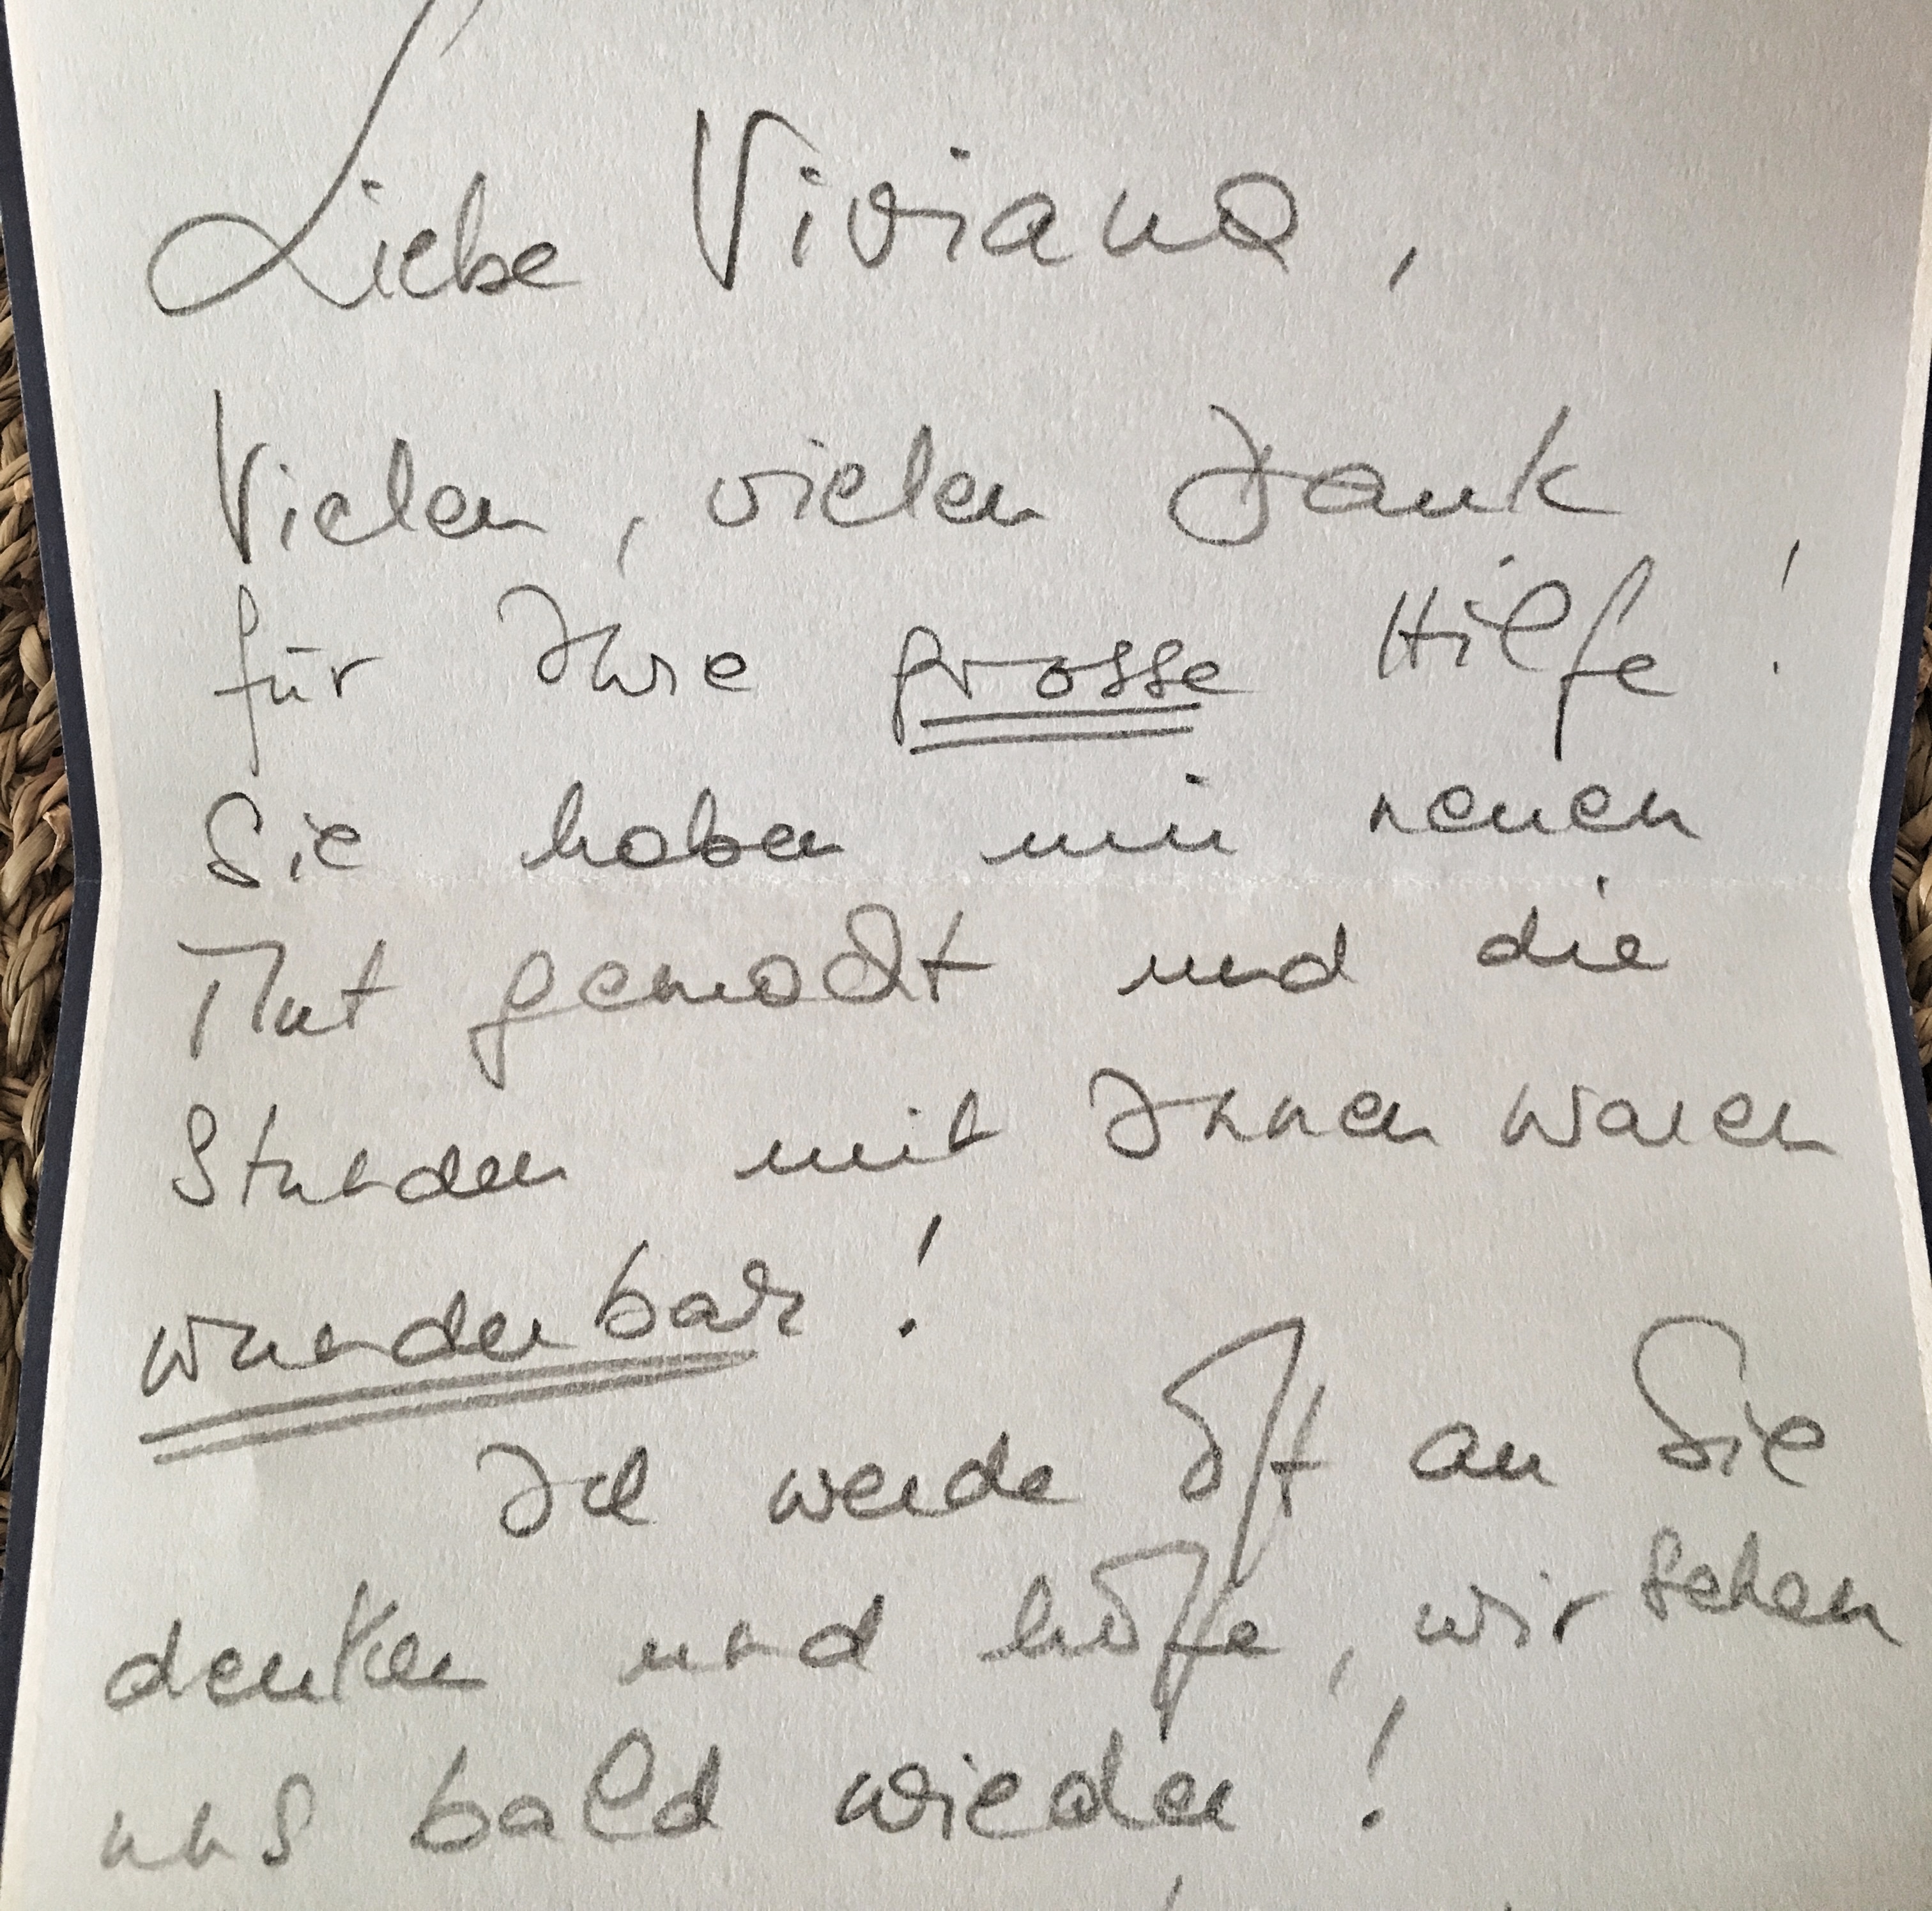 Liebe Viviana,
Vielen, vielen Dank
für Ihre grosse Hilfe!
Sie haben mir neuen
Mut gemacht und die
Stunden mit Ihnen waren
wunderbar!
Ich werde oft an Sie
denken und hoffe, wir sehen
uns bald wieder!